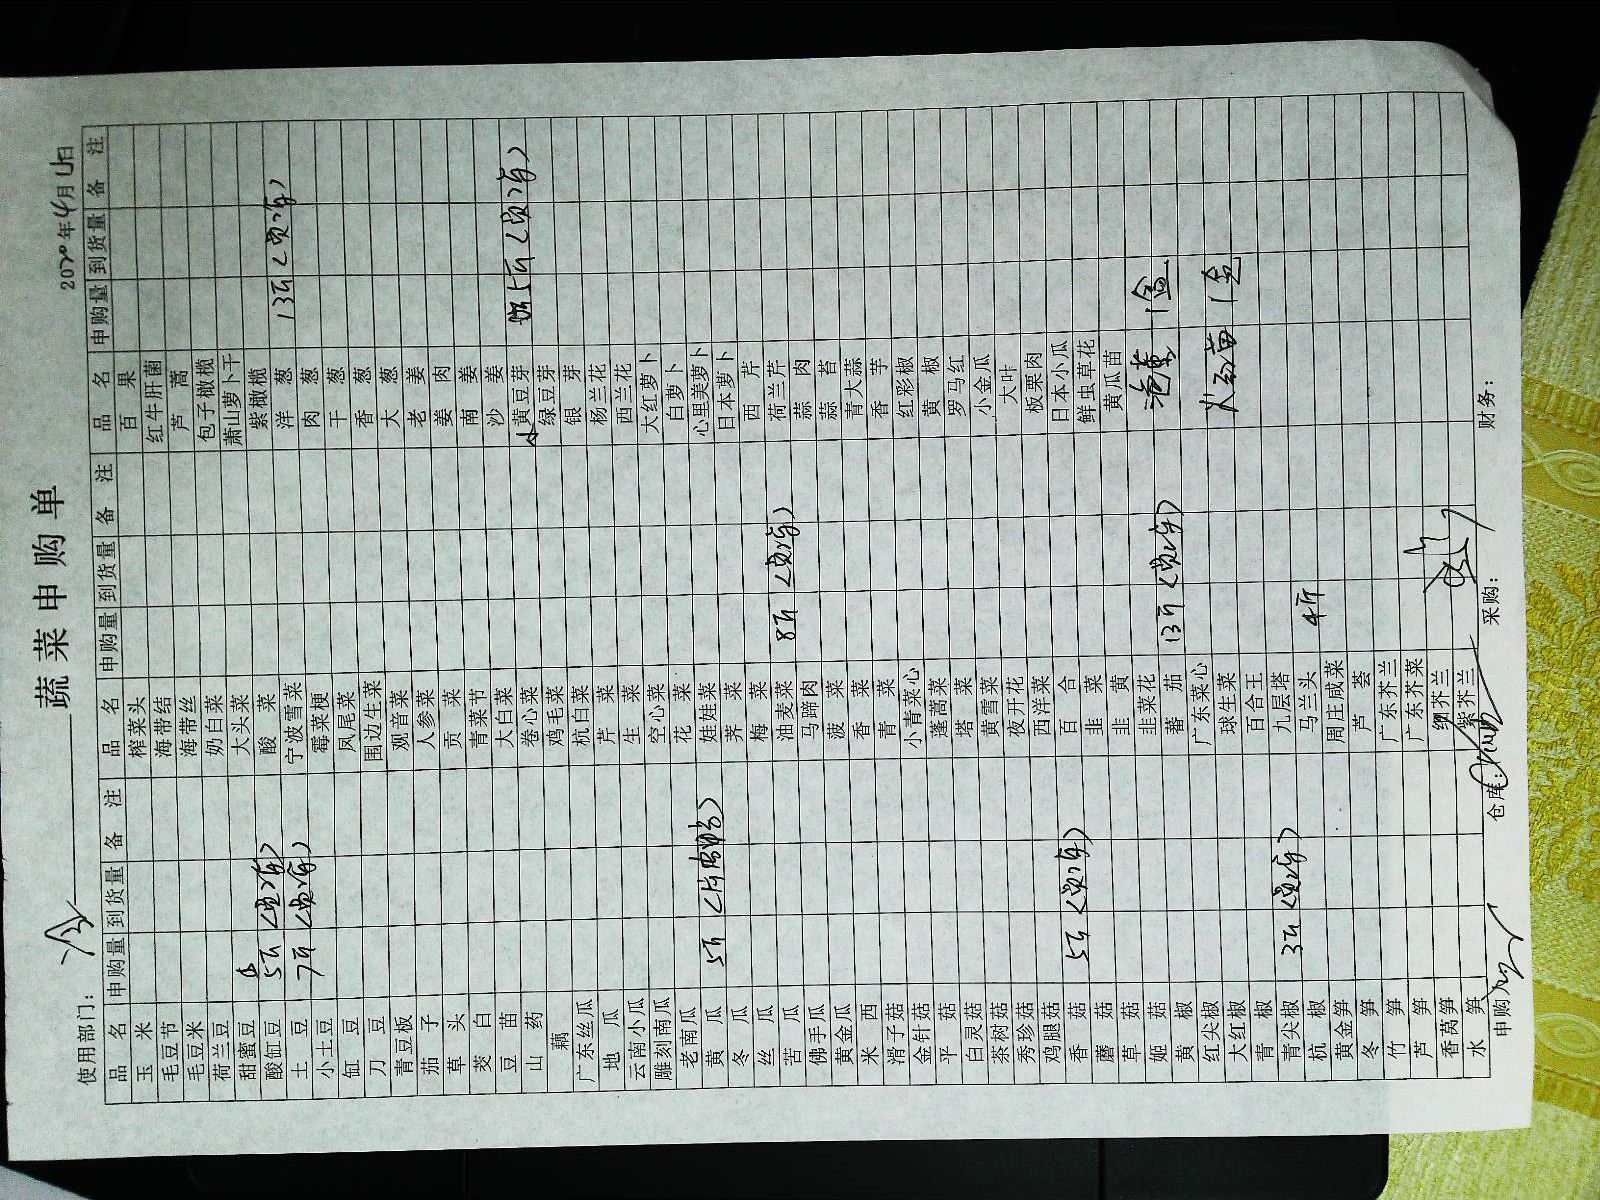 蔬菜申购单
使用部门： 2020年4月 日
品名 申购量 到货量 备注 品名 申购量 到货量 备注 品名 申购量 到货量 备注
玉米 榨菜头 百果
毛豆节 海带结 红牛肝菌
毛豆米 海带丝 芦蒿
荷兰豆 奶白菜 包子橄榄
甜蜜豆 大头菜 萧山萝卜干
酸缸豆 5斤 酸菜 紫橄榄
土豆 7斤 宁波雪菜 洋葱 13斤
小土豆 霉菜梗 肉葱
缸豆 凤尾菜 干葱
刀豆 围边生菜 香葱
青豆板 观音菜 大葱
茄子 人参菜 老姜
草头 贡菜 姜肉
茭白 青菜节 南姜
豆苗 大白菜 沙姜
山药 卷心菜 黄豆芽 5斤
藕 鸡毛菜 绿豆芽
广东丝瓜 杭白菜 银芽
地瓜 芹菜 杨兰花
云南小瓜 生菜 西兰花
雕刻南瓜 空心菜 大红萝卜
老南瓜 花菜 白萝卜
黄瓜 5斤 娃娃菜 心里美萝卜
冬瓜 荠菜 日本萝卜
丝瓜 梅菜 西芹
苦瓜 油麦菜 8斤 荷兰芹
佛手瓜 马蹄肉 蒜肉
黄金瓜 菠菜 蒜苔
米西 香菜 青大蒜
滑子菇 青菜 香芋
金针菇 小青菜心 红彩椒
平菇 蓬蒿菜 黄椒
白灵菇 塔菜 罗马红
茶树菇 黄雪菜 小金瓜
秀珍菇 夜开花 大叶
鸡腿菇 西洋菜 板栗肉
香菇 5斤 百合 日本小瓜
蘑菇 韭菜 鲜虫草花
草菇 韭黄 黄瓜苗
姬菇 韭菜花
黄椒 蕃茄 13斤 1盒
红尖椒 广东菜心
大红椒 球生菜 苗 1盒
青椒 百合王
青尖椒 3斤 九层塔
杭椒 马兰头 4斤
黄金笋 周庄咸菜
冬笋 芦荟
竹笋 广东芥兰
芦笋 广东芥菜
香莴笋 红芥兰
水笋 紫芥兰
申购： 仓库： 采购： 财务：